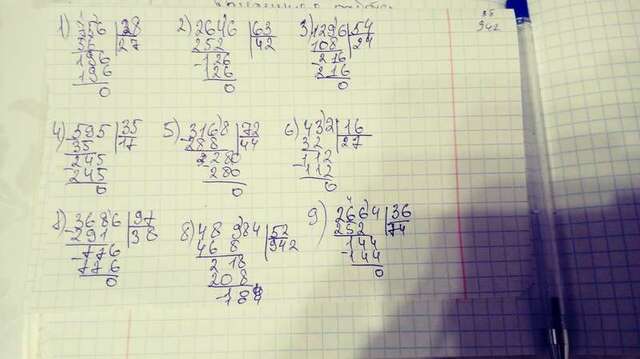 35
942
1) 756 28
2) 2646 63
3) 1296 54
56 27
252 42
108 24
196
126
216
196
126
216
0
0
0
4) 595 35
5) 3168 72
6) 432 16
35 17
288 44
32 27
245
280
112
245
280
112
0
0
0
7) 3686 97
8) 48 984 52
9) 2664 36
291 38
468 942
252 74
776
218
144
776
208
144
0
184
0